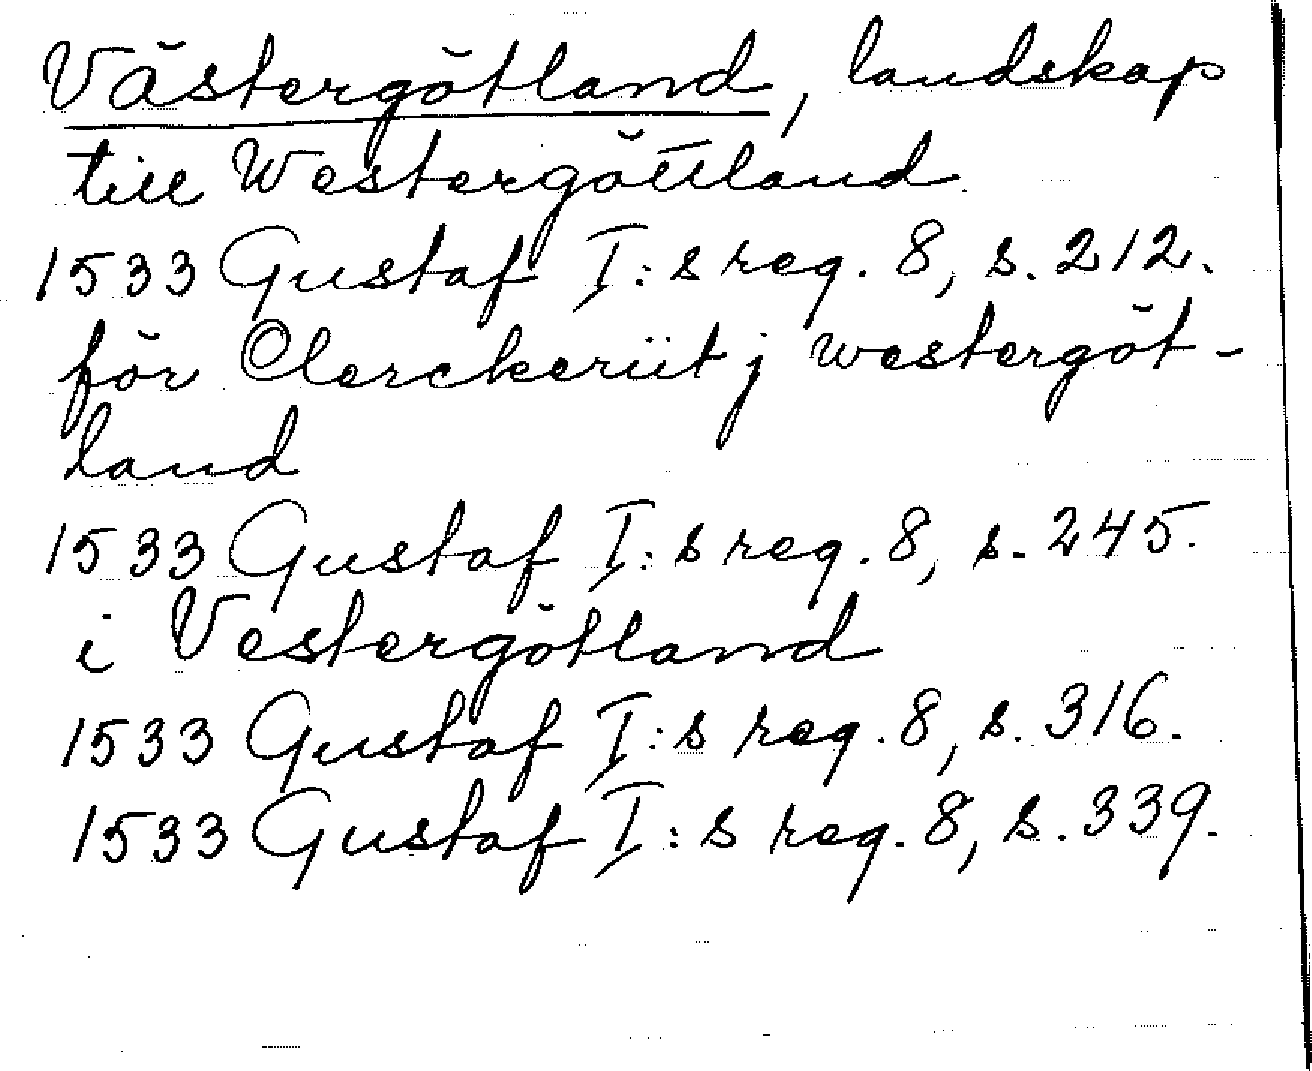 Västergötland, landskap
till Westergöttland
1533 Gustaf I:s reg. 8, s. 212.
för Clerckeriit j westergöt-
land
1533 Gustaf I:s reg. 8, s. 245.
i Vestergötland
1533 Gustaf I:s reg. 8, s. 316.
1533 Gustaf I:s reg. 8, s. 339.